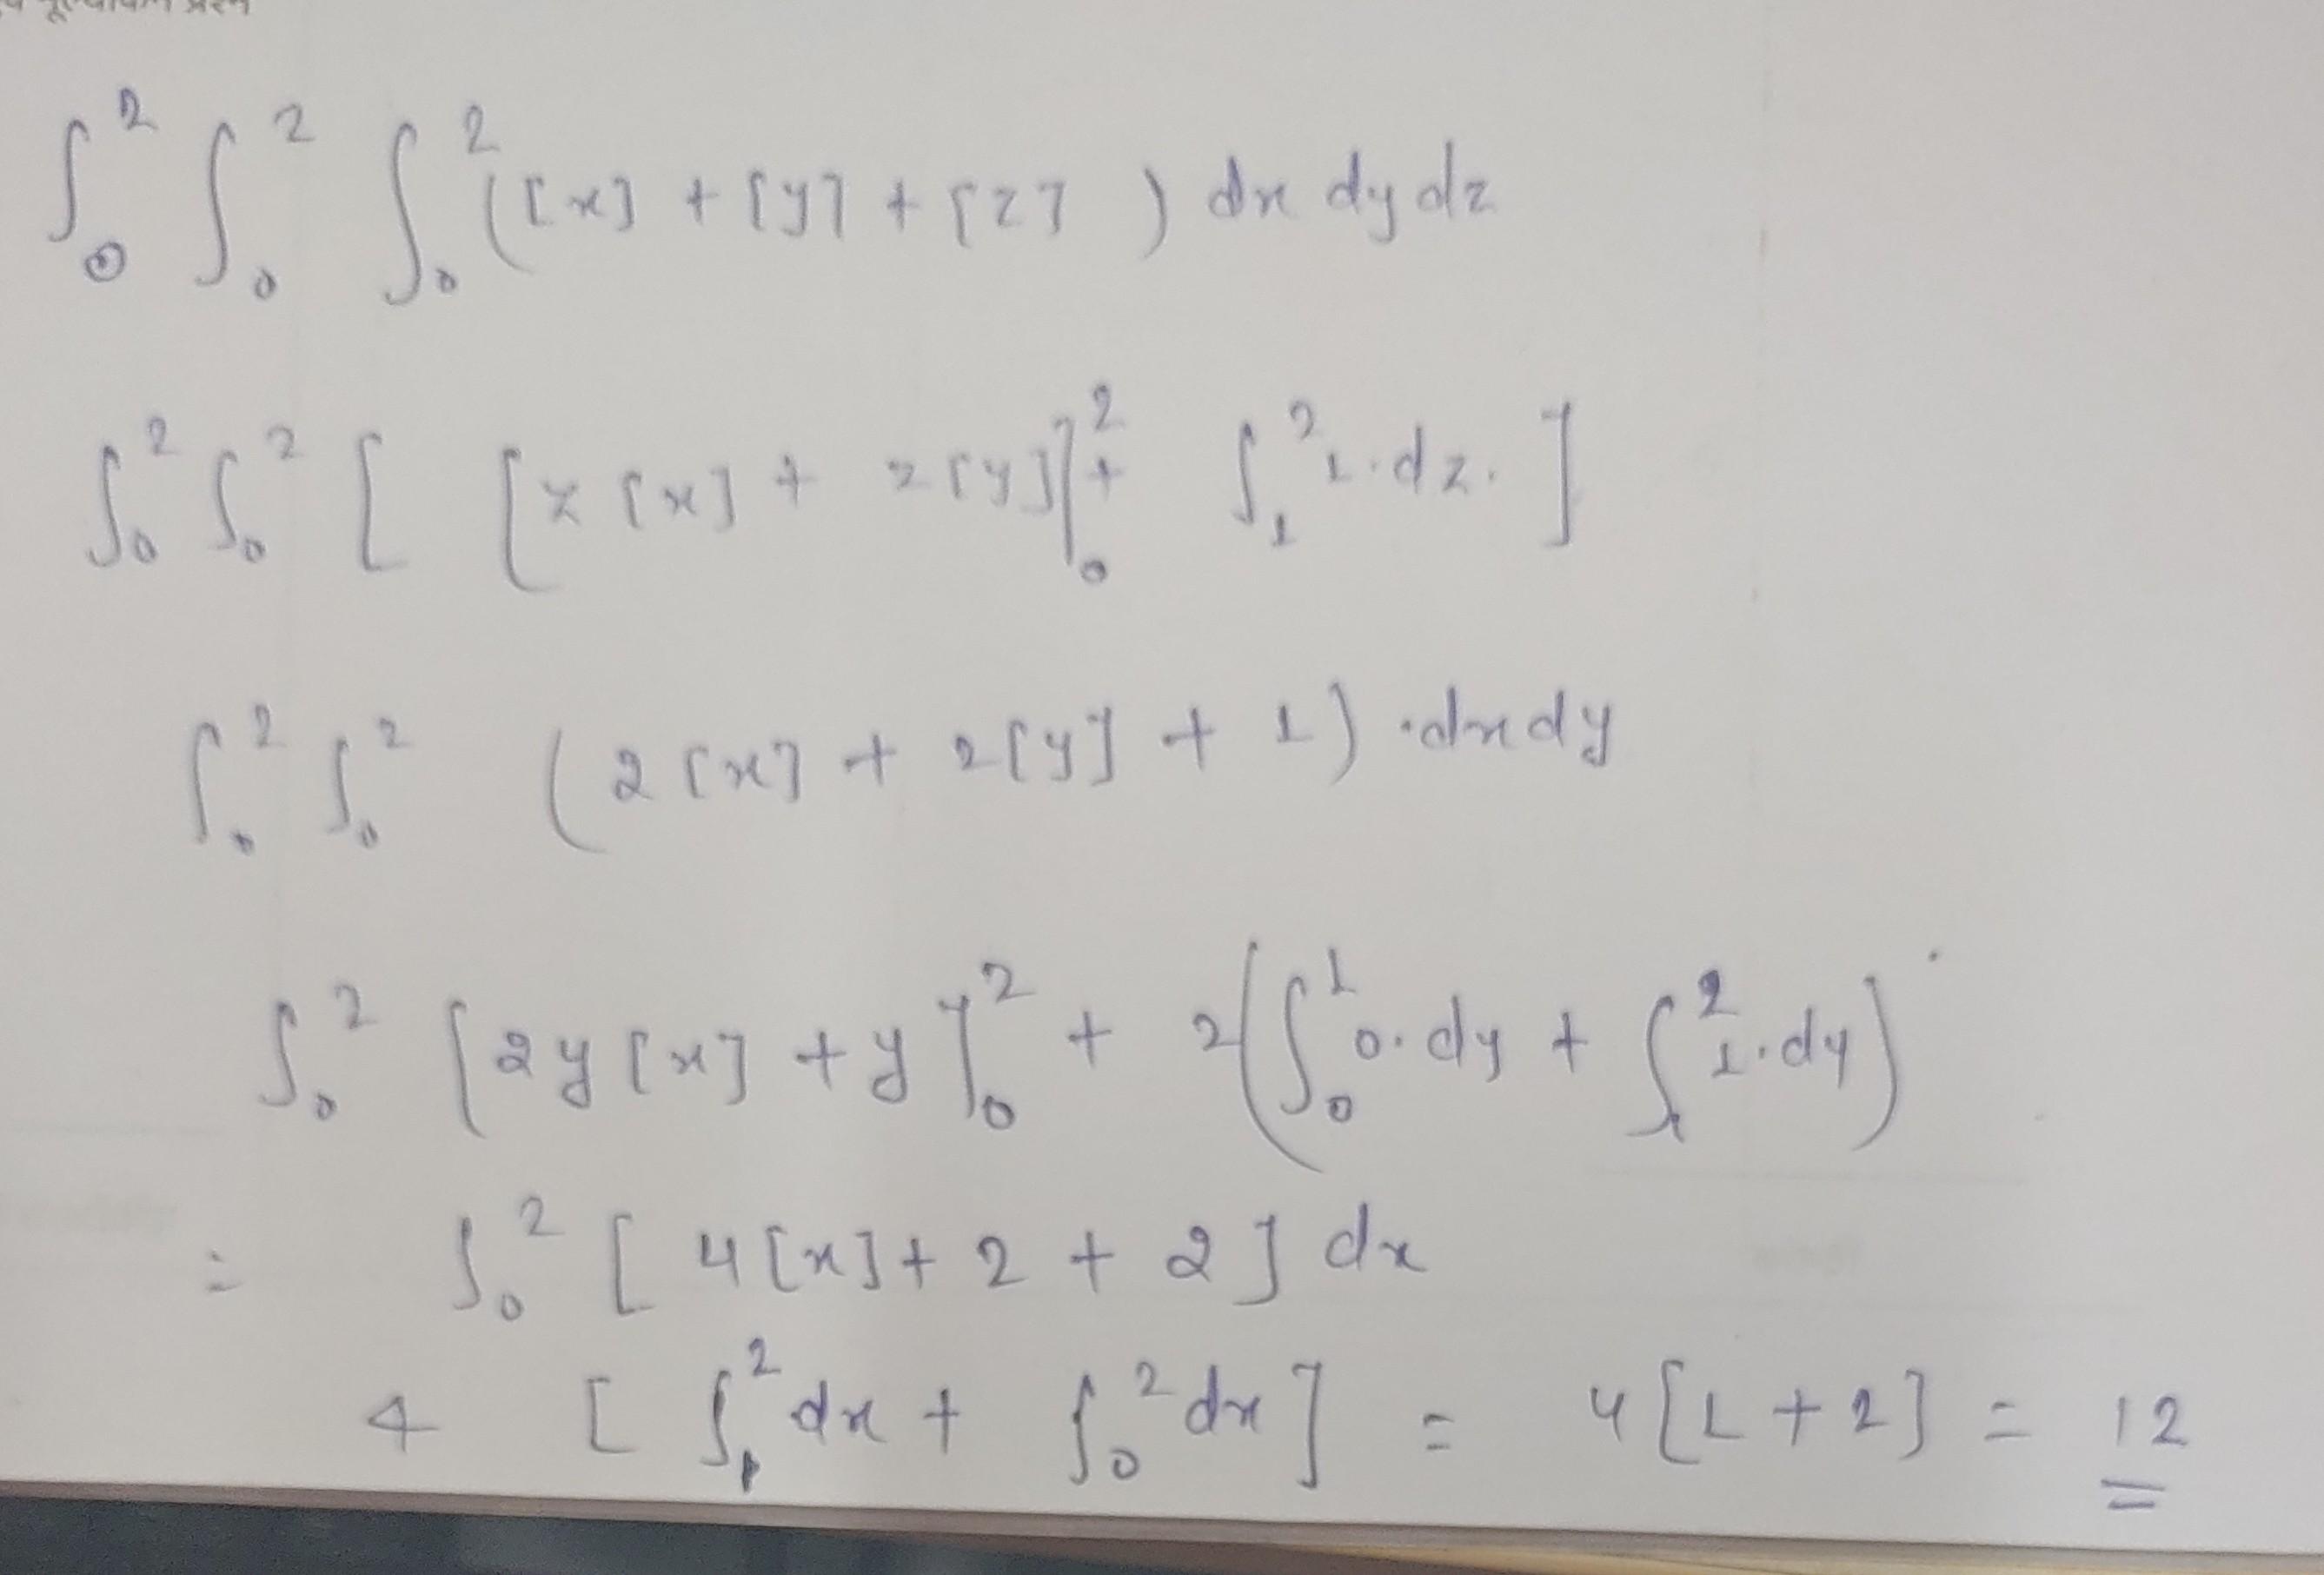 मूल्यांकन प्रश्न
∫₀² ∫₀² ∫₀² ([x] + [y] + [z]) dx dy dz
∫₀² ∫₀² [ [z[x] + z[y]]|₀² + ∫₁² 1·dz. ]
∫₀² ∫₀² (2[x] + 2[y] + 1)·dxdy
∫₀² [2y[x] + y]₀² + 2(∫₀¹ 0·dy + ∫₁² 1·dy)
= ∫₀² [4[x] + 2 + 2] dx
4 [∫₁² dx + ∫₀² dx] = 4[1 + 2] = 12